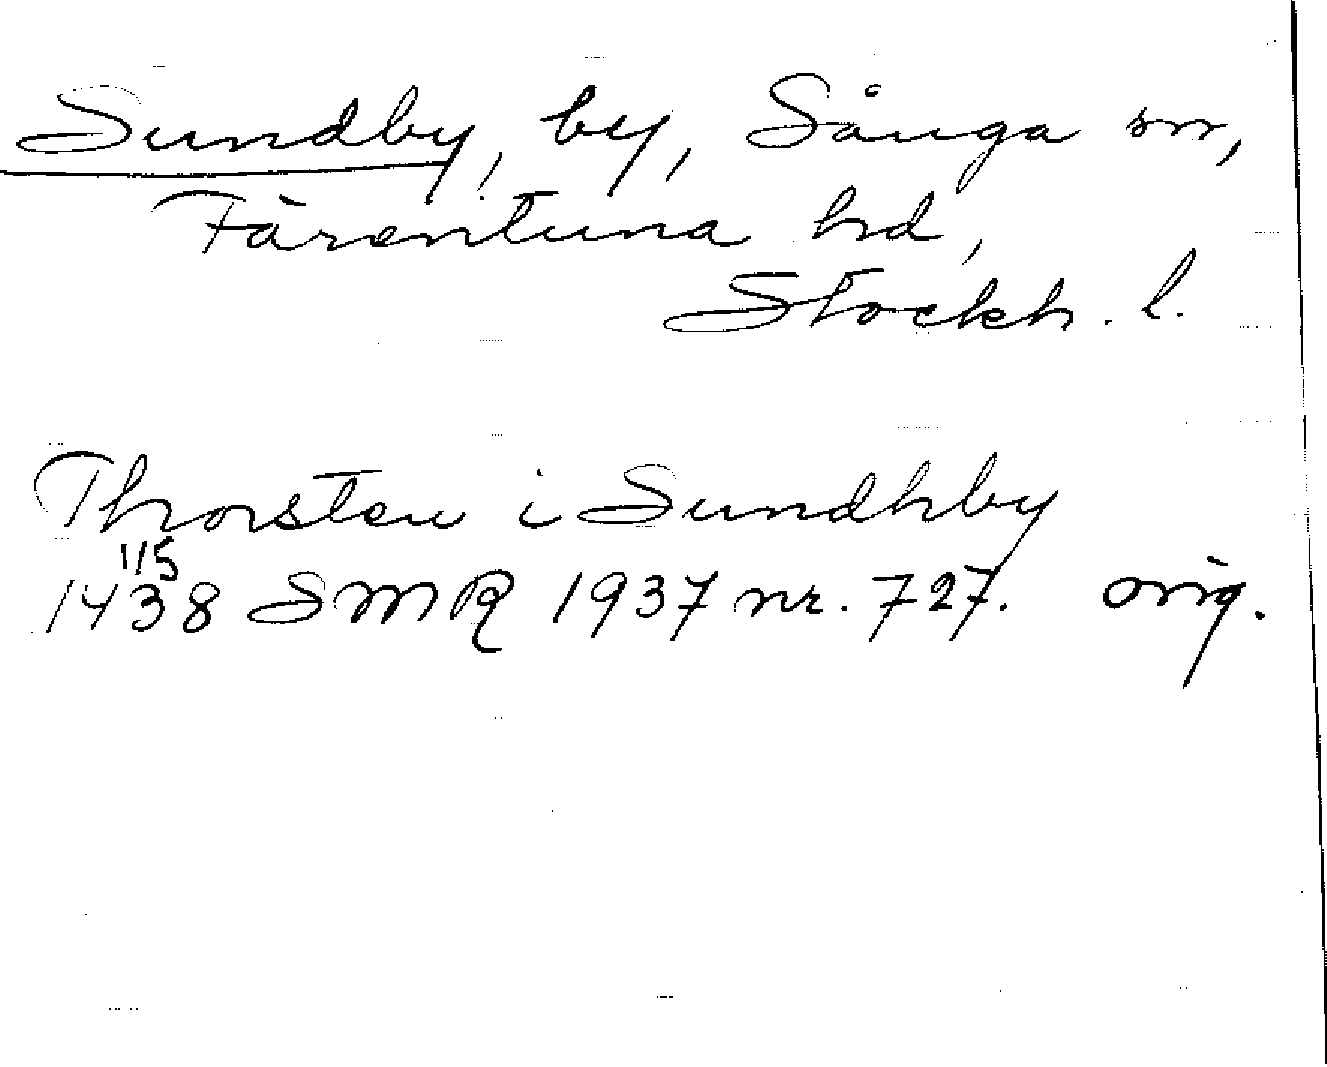 Sundby, by, Sånga sn,
Färentuna hd,
Stockh. l.
Thorsten i Sundhby
1/5
1438 SMR 1937 nr. 727. orig.